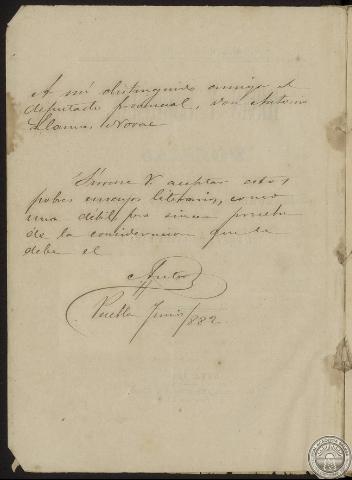 A mi distinguido amigo el
diputado provincial, don Antonio
Llamas Novac
Sirvase V. aceptar estos
pobres ensayos literarios, como
una débil pero sincera prueba
de la consideracion que le
debe el
Autor
Puebla Junio/882.